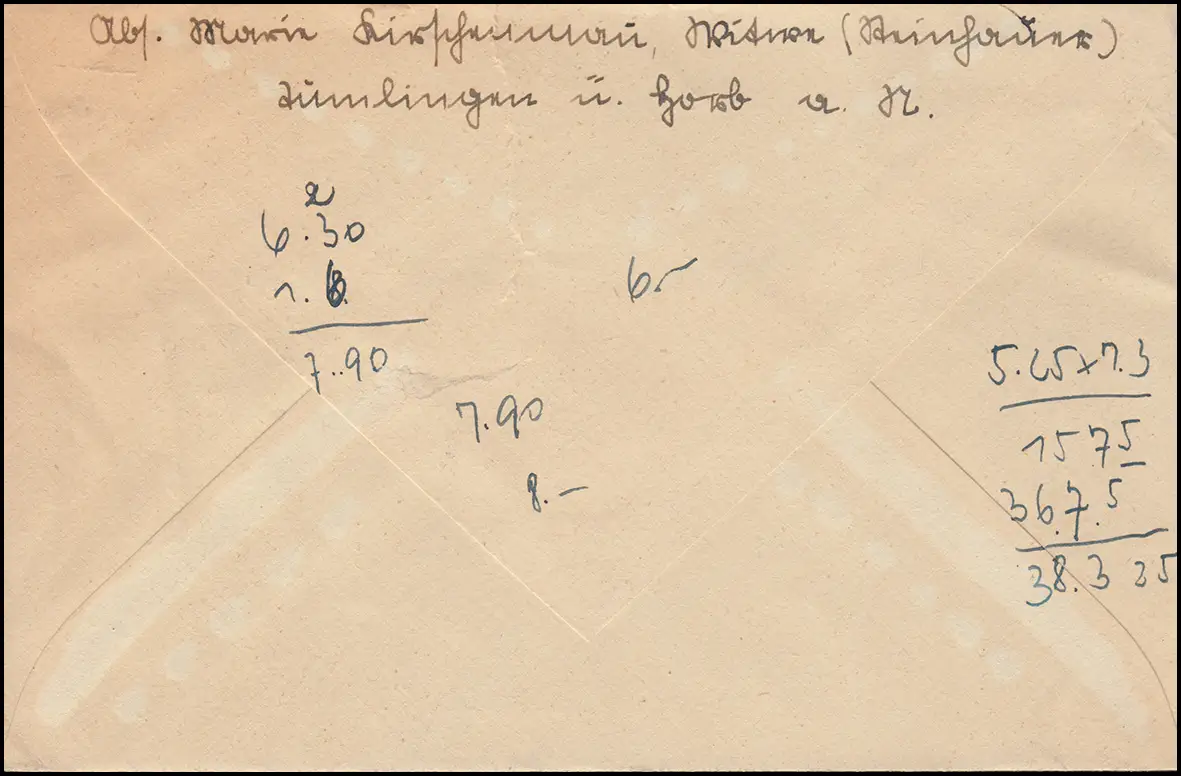 Abs. Marie Kirschenmann, Witwe (Steinhauer)
Tumlingen ü. Horb a. N.
2
6.30
1.6
7.90
6.-
7.90
8.-
5.25x7.3
1575
367.5
38.325